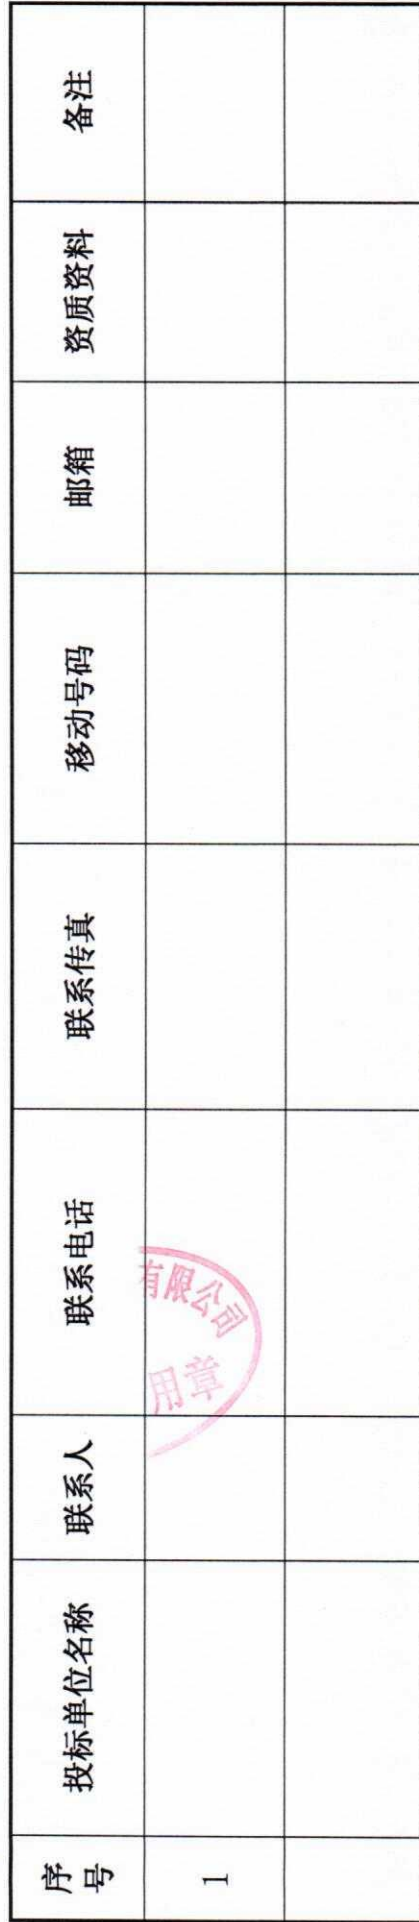 序号 投标单位名称 联系人 联系电话 联系传真 移动号码 邮箱 资质资料 备注
1
有限公司
用章